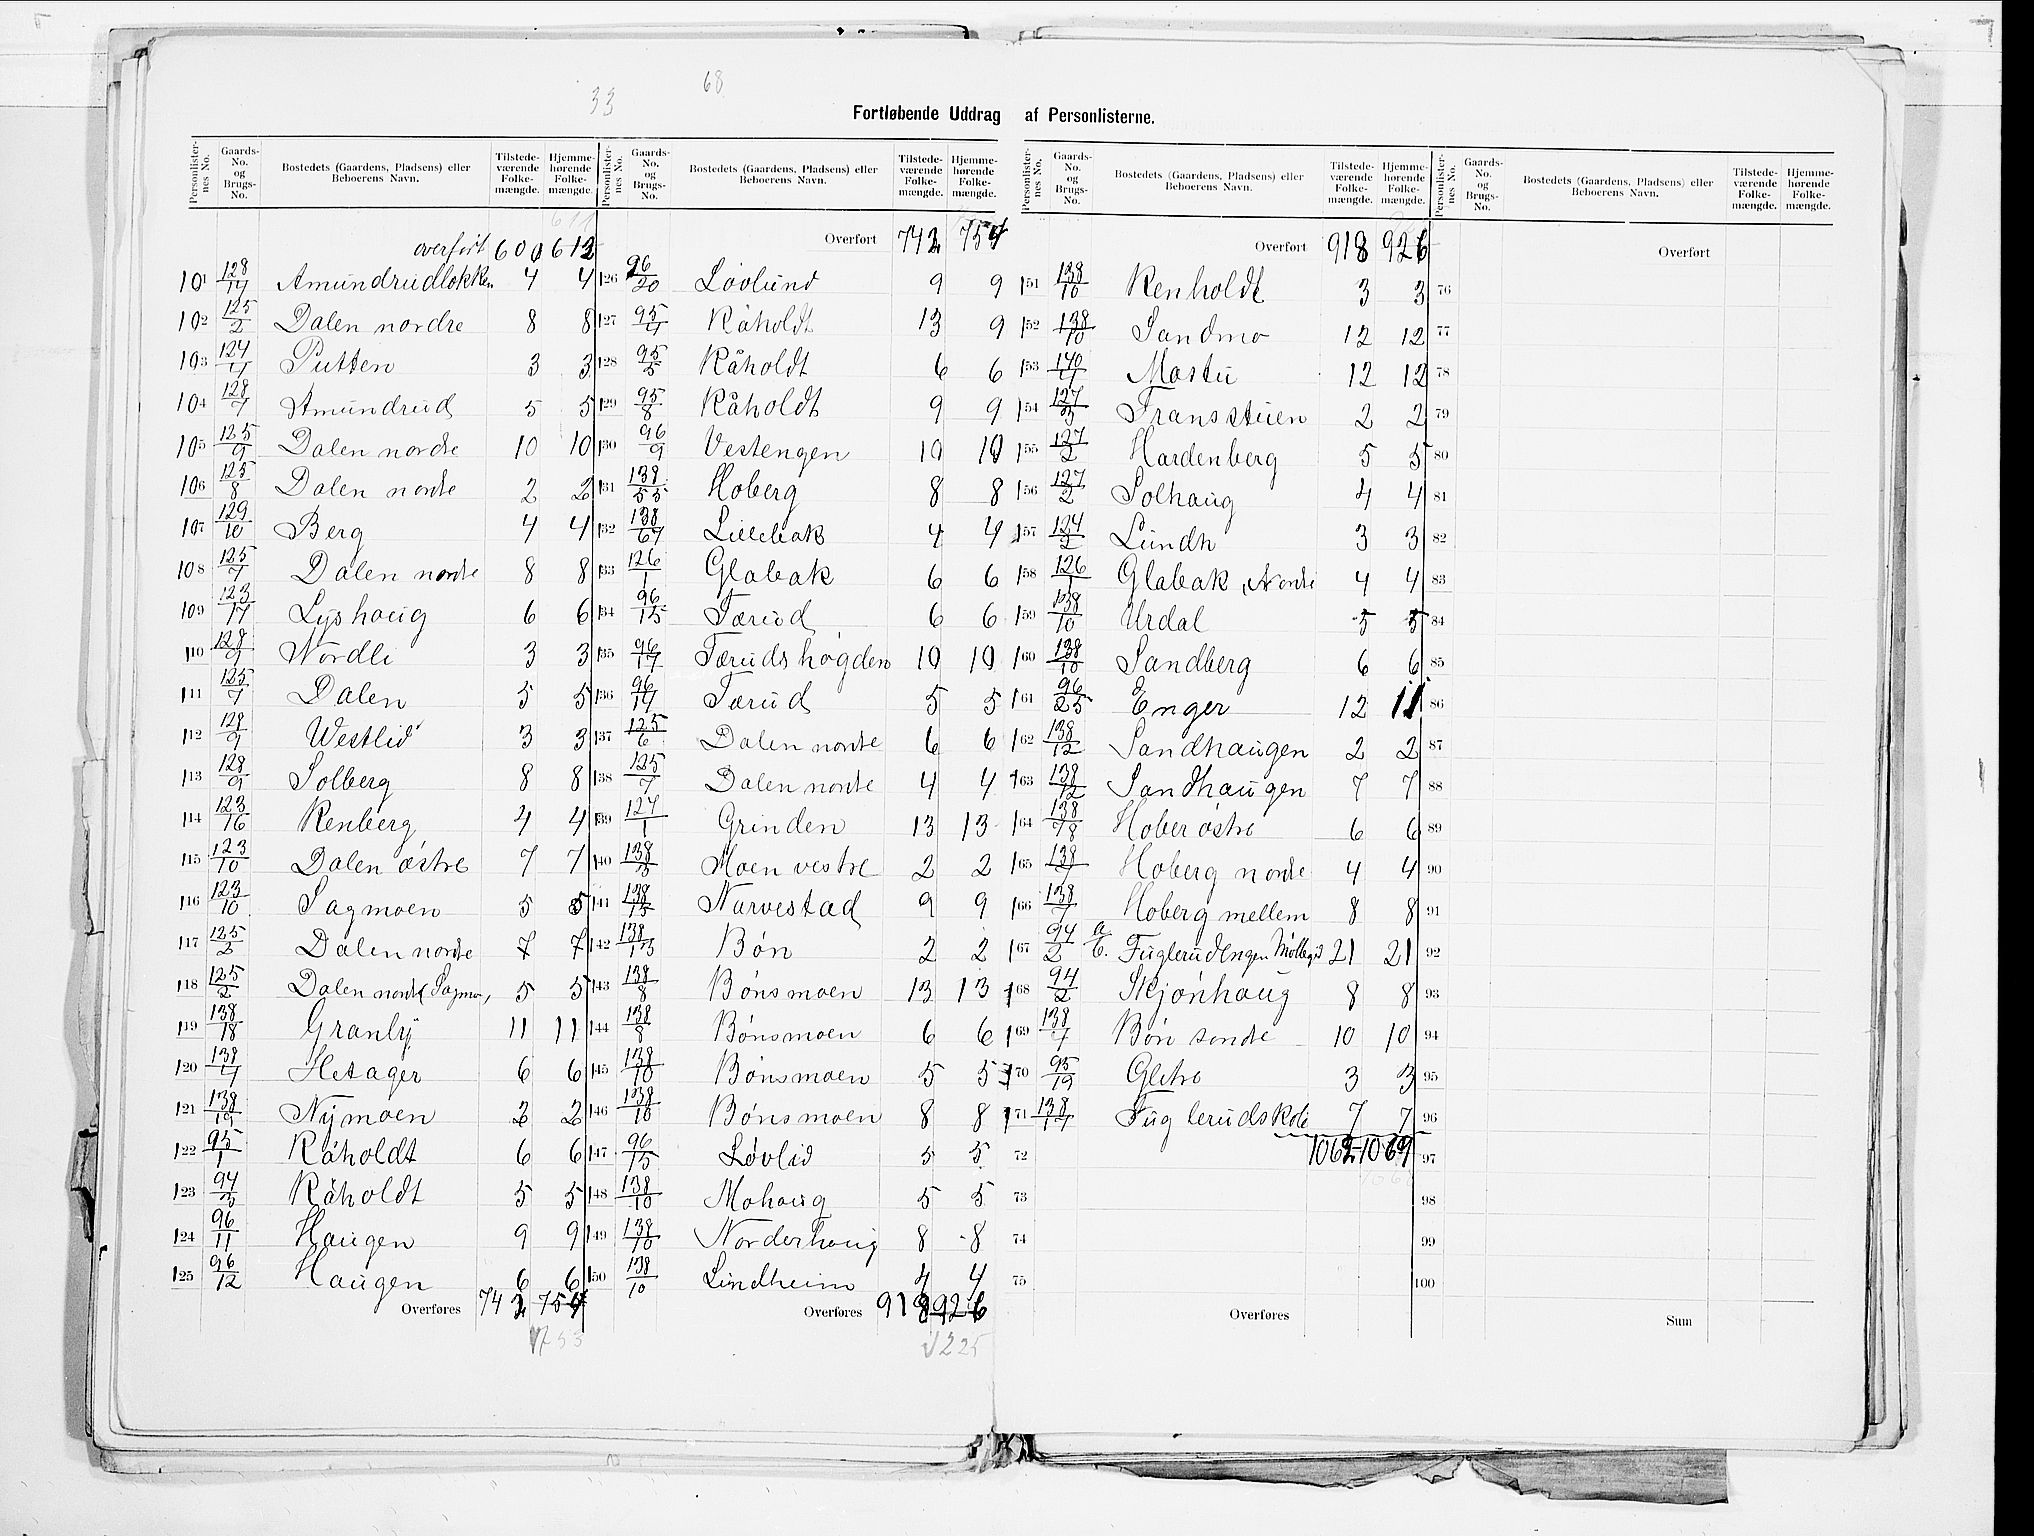 33
68
Fortløbende Uddrag af Personlisterne.
Personlisternes No. Gaards-No. og Brugs-No. Bostedets (Gaardens, Pladsens) eller Beboerens Navn. Tilstedeværende Folkemængde. Hjemmehørende Folkemængde.
overført 600 612
101 128/17 Amundrudløkken 4 4
102 125/2 Dalen nordre 8 8
103 124/4 Putten 3 3
104 128/7 Amundrud 5 5
105 125/9 Dalen nordre 10 10
106 125/8 Dalen nordre 2 2
107 129/10 Berg 4 4
108 125/7 Dalen nordre 8 8
109 123/17 Lyshaug 6 6
110 128/9 Nordli 3 3
111 125/7 Dalen 5 5
112 128/9 Westlid 3 3
113 128/9 Solberg 8 8
114 123/16 Renberg 4 4
115 123/10 Dalen østre 7 7
116 123/10 Sagmoen 5 5
117 125/2 Dalen nordre 7 7
118 125/2 Dalen nordre (Sagmo, 5 5
119 138/18 Granly 11 11
120 138/4 Hetager 6 6
121 138/19 Nymoen 2 2
122 95/1 Råholdt 6 6
123 94/3 Råholdt 5 5
124 96/11 Haugen 9 9
125 96/12 Haugen 6 6
Overføres 742 754
753
Personlisternes No. Gaards-No. og Brugs-No. Bostedets (Gaardens, Pladsens) eller Beboerens Navn. Tilstedeværende Folkemængde. Hjemmehørende Folkemængde.
Overført 742 754
126 96/20 Løvlund 9 9
127 95/4 Råholdt 13 9
128 95/5 Råholdt 6 6
129 95/8 Råholdt 9 9
130 96/9 Vestengen 10 10
131 138/55 Hoberg 8 8
132 138/67 Lillebak 4 4
133 126/1 Glabak 6 6
134 96/15 Tærud 6 6
135 96/17 Tærudshøgden 10 10
136 96/14 Tærud 5 5
137 125/6 Dalen nordre 6 6
138 125/7 Dalen nordre 4 4
139 127/1 Grinden 13 13
140 138/3 Moen vestre 2 2
141 138/15 Narvestad 9 9
142 138/13 Bøn 2 2
143 138/8 Bønsmoen 13 13
144 138/8 Bønsmoen 6 6
145 138/10 Bønsmoen 5 5
146 138/10 Bønsmoen 8 8
147 96/15 Løvlid 5 5
148 138/10 Mohaug 5 5
149 138/10 Norderhaug 8 8
150 138/10 Lindheim 4 4
Overføres 918 926
225
Personlisternes No. Gaards-No. og Brugs-No. Bostedets (Gaardens, Pladsens) eller Beboerens Navn. Tilstedeværende Folkemængde. Hjemmehørende Folkemængde.
Overført 918 926
151 138/10 Renholdt 3 3
152 138/10 Sandmo 12 12
153 140/4 Mastu 12 12
154 127/3 Fransstuen 2 2
155 127/2 Hardenberg 5 5
156 127/2 Solhaug 4 4
157 124/2 Lundh 3 3
158 126/1 Glabak, Nordre 4 4
159 138/10 Urdal 5 5
160 138/10 Sandberg 6 6
161 96/25 Enger 12 11
162 138/12 Sandhaugen 2 2
163 138/12 Sandhaugen 7 7
164 138/78 Hober østre 6 6
165 138/7 Hoberg nordre 4 4
166 138/7 Hoberg mellem 8 8
167 94/2 a b. Fuglerudengen 21 21
168 94/2 Skjønhaug 8 8
169 138/7 Bøn søndre 10 10
170 95/19 Gletre 3 3
171 138/17 Fuglerudskole 7 7
72 1062 1069
73
74
75
Overføres
Personlisternes No. Gaards-No. og Brugs-No. Bostedets (Gaardens, Pladsens) eller Beboerens Navn. Tilstedeværende Folkemængde. Hjemmehørende Folkemængde.
Overført
76
77
78
79
80
81
82
83
84
85
86
87
88
89
90
91
92
93
94
95
96
97
98
99
100
Sum